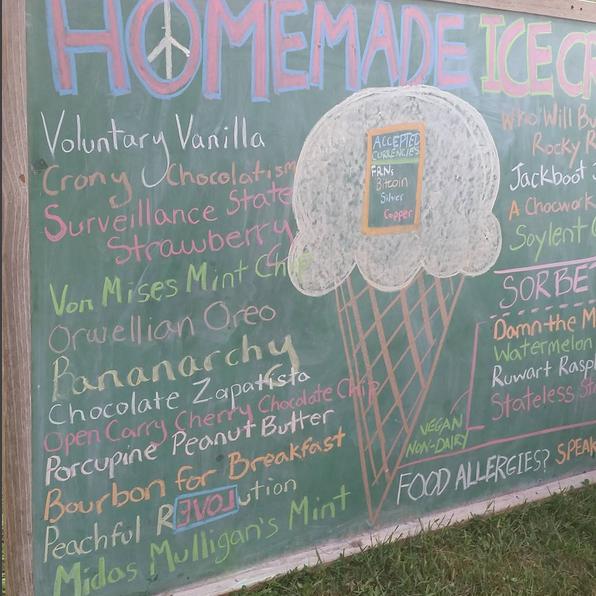 HOMEMADE ICE CR
Voluntary Vanilla
Crony Chocolatism
Surveillance State
Strawberry
Von Mises Mint Chip
Orwellian Oreo
Bananarchy
Chocolate Zapatista
Open Carry Cherry Chocolate Chip
Porcupine Peanut Butter
Bourbon for Breakfast
Peachful REVOLution
Midas Mulligan's Mint
ACCEPTED
CURRENCIES
FRNs
Bitcoin
Silver
Copper
Who Will Bu
Rocky R
Jackboot
A Chocwork
Soylent
SORBE
Damn the M
Watermelon
Ruwart Rasp
Stateless St
VEGAN
NON-DAIRY
FOOD ALLERGIES? SPEAK